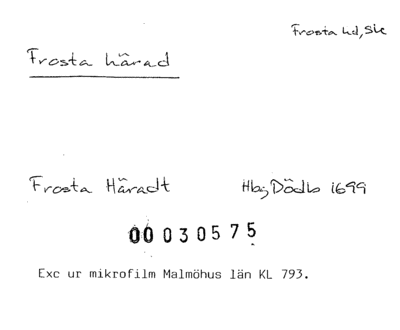 Frosta hd, Sk
Frosta härad
Frosta Häradt Hbg Dödb 1699
00030575
Exc ur mikrofilm Malmöhus län KL 793.